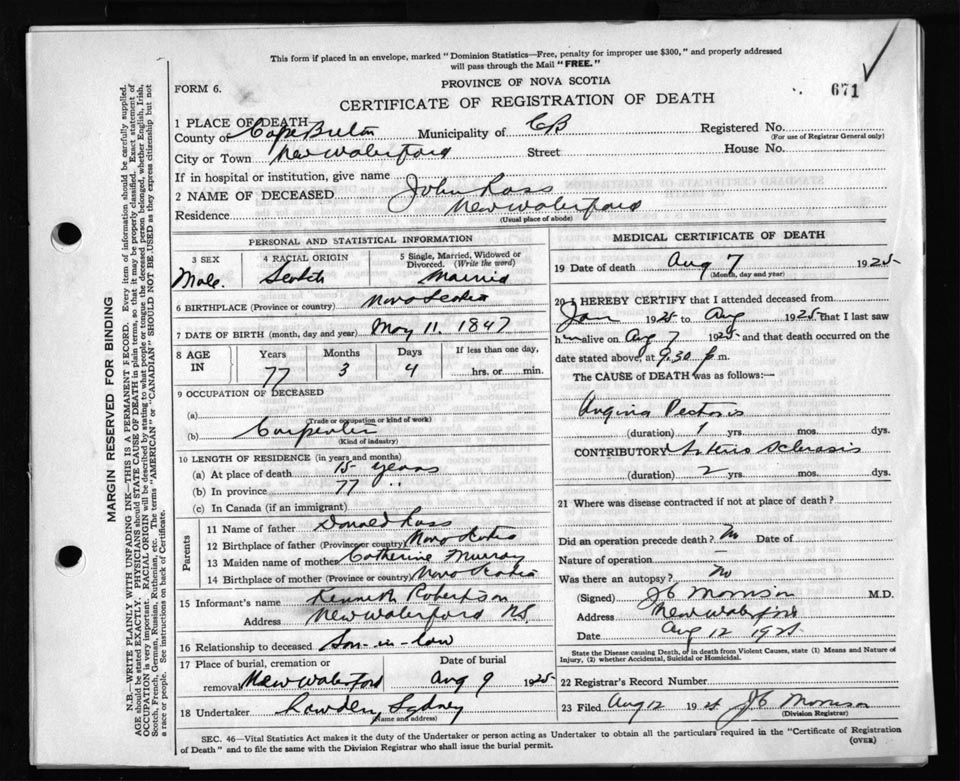 This form if placed in an envelope, marked "Dominion Statistics—Free, penalty for improper use $300," and properly addressed
will pass through the Mail "FREE."
FORM 6.
PROVINCE OF NOVA SCOTIA
671
CERTIFICATE OF REGISTRATION OF DEATH
1 PLACE OF DEATH
County of Cape Breton Municipality of CB Registered No.
(For use of Registrar General only)
City or Town New Waterford Street House No.
If in hospital or institution, give name
2 NAME OF DECEASED John Ross
Residence New Waterford
(Usual place of abode)
PERSONAL AND STATISTICAL INFORMATION
3 SEX 4 RACIAL ORIGIN 5 Single, Married, Widowed or
Divorced. (Write the word)
Male. Scotch Married
6 BIRTHPLACE (Province or country) Nova Scotia
7 DATE OF BIRTH (month, day and year) May 11 1847
8 AGE IN Years Months Days If less than one day,
77 3 4 hrs. or min.
9 OCCUPATION OF DECEASED
(a)
(Trade or occupation or kind of work)
(b) Carpenter
(Kind of industry)
10 LENGTH OF RESIDENCE (in years and months)
(a) At place of death 15 years
(b) In province 77 "
(c) In Canada (if an immigrant)
Parents
11 Name of father Donald Ross
12 Birthplace of father (Province or country) Nova Scotia
13 Maiden name of mother Catherine Murray
14 Birthplace of mother (Province or country) Nova Scotia
15 Informant's name Kenneth Robertson
Address New Waterford NS.
16 Relationship to deceased Son-in-law
17 Place of burial, cremation or Date of burial
removal New Waterford Aug 9 1925
18 Undertaker Lowden, Sydney
(Name and address)
MEDICAL CERTIFICATE OF DEATH
19 Date of death Aug 7 1925
(Month, day and year)
20 I HEREBY CERTIFY that I attended deceased from
Jan 1925 to Aug 1925 that I last saw
him alive on Aug 7 1925 and that death occurred on the
date stated above, at 9.30 p m.
The CAUSE of DEATH was as follows:—
Angina Pectoris
(duration) 1 yrs. mos. dys.
CONTRIBUTORY Arterio Sclerosis
(duration) 2 yrs. mos. dys.
21 Where was disease contracted if not at place of death?
Did an operation precede death? No Date of
Nature of operation
Was there an autopsy? No
(Signed) J C Morrison M.D.
Address New Waterford
Date Aug 12 1925
State the Disease causing Death, or in death from Violent Causes, state (1) Means and Nature of
Injury, (2) whether Accidental, Suicidal or Homicidal.
22 Registrar's Record Number
23 Filed Aug 12 1925 J C Morrison
(Division Registrar)
SEC. 46—Vital Statistics Act makes it the duty of the Undertaker or person acting as Undertaker to obtain all the particulars required in the "Certificate of Registration
of Death" and to file the same with the Division Registrar who shall issue the burial permit.
(OVER)
MARGIN RESERVED FOR BINDING
N.B.—WRITE PLAINLY WITH UNFADING INK—THIS IS A PERMANENT RECORD. Every item of information should be carefully supplied.
AGE should be stated EXACTLY. PHYSICIANS should STATE CAUSE OF DEATH in plain terms, so that it may be properly classified. Exact statement of
OCCUPATION is very important. RACIAL ORIGIN will be described by stating to what people or tongue the deceased person belonged, whether English, Irish,
Scotch, French, German, Russian, Ruthenian, etc. The terms "AMERICAN" or "CANADIAN" SHOULD NOT BE USED as they express citizenship but not
a race or people. See instructions on back of Certificate.